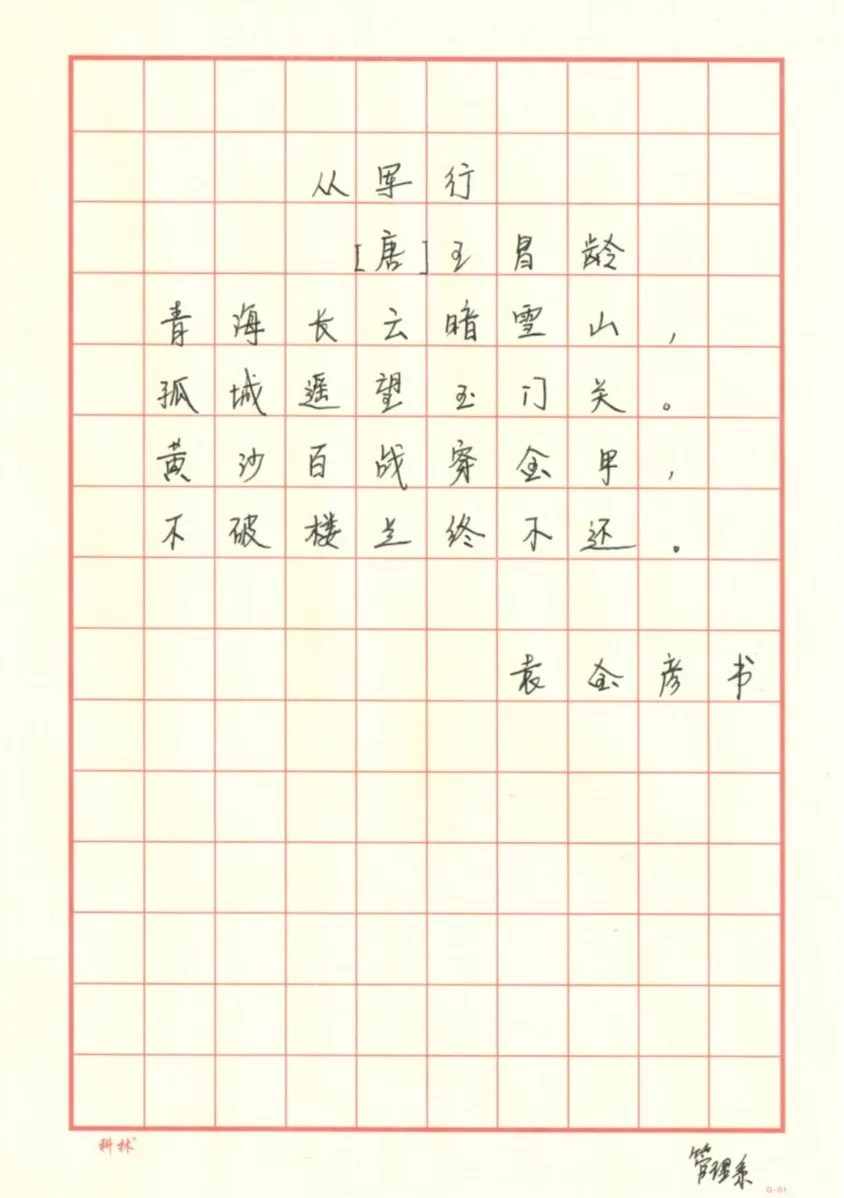 从军行
[唐]王昌龄
青海长云暗雪山，
孤城遥望玉门关。
黄沙百战穿金甲，
不破楼兰终不还。
袁金彦书
科林
管理系
G-01